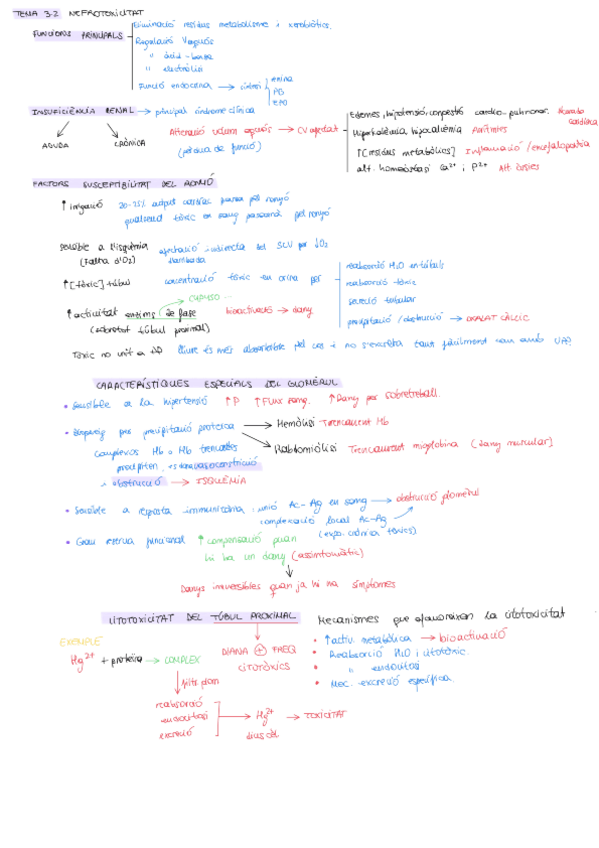 TEMA 3.2 NEFROTOXICITAT
FUNCIONS PRINCIPALS
Eliminació residus metabolisme i xenobiòtics.
Regulació V aquós
" àcid-base
" electròlits
Funció endocrina → síntesi
renina
PG
EPO
INSUFICIÈNCIA RENAL → principal síndrome clínica
AGUDA
CRÒNICA
Alteració volum aquós → CV afectat
(pèrdua de funció)
Edemes, hipotensió, congestió cardio-pulmonar.
cardíaca
Aritmies
↑[residus metabòlics] Inflamació/encefalopatia
alt. homeostasi Ca2+ i P2+ Alt. òssies
FACTORS SUSCEPTIBILITAT DEL RONYÓ
↑ irrigació 20-25% output cardíac passa pel ronyó
qualsevol tòxic en sang passarà pel ronyó
Sensible a l'isquèmia
(Falta d'O2)
afectació indirecta del SCV per ↓O2
↑[tòxic] túbul
concentració tòxic en orina per
reabsorció H2O en túbuls
reabsorció tòxic
secreció tubular
precipitació/obstrucció → OXALAT CÀLCIC
CYP450 ...
↑ activitat enzims de fase
(sobretot túbul proximal)
bioactivació → dany
Tòxic no unit a
lliure és més absorbible pel cos i no s'excreta tant fàcilment com amb
CARACTERÍSTIQUES ESPECIALS DEL GLOMÈRUL
• Sensible a la hipertensió ↑P ↑Flux sang. ↑Dany per sobretreball.
• per precipitació proteica
Hemòlisi Trencament Hb
Rabdomiòlisi Trencament mioglobina (dany muscular)
complexos Hb o Mb trencades
precipiten, es dona vasoconstricció
i obstrucció → ISQUÈMIA
• Sensible a resposta immunitària: unió Ac-Ag en sang → obstrucció glomèrul
complexació local Ac-Ag
(expo. crònica tòxics)
• Gran reserva funcional ↑ compensació quan
hi ha un dany (assimtomàtic)
Danys irreversibles quan ja hi ha símptomes
CITOTOXICITAT DEL TÚBUL PROXIMAL
DIANA + FREQ
CITOTÒXICS
Mecanismes que afavoreixen la citotoxicitat
• ↑activ. metabòlica → bioactivació
• Reabsorció H2O i citotòxic.
• " endocitosi
• Mec. excreció específica.
EXEMPLE
Hg2+ + proteïna → COMPLEX
reabsorció
endocitosi
excreció
→ Hg2+ → TOXICITAT